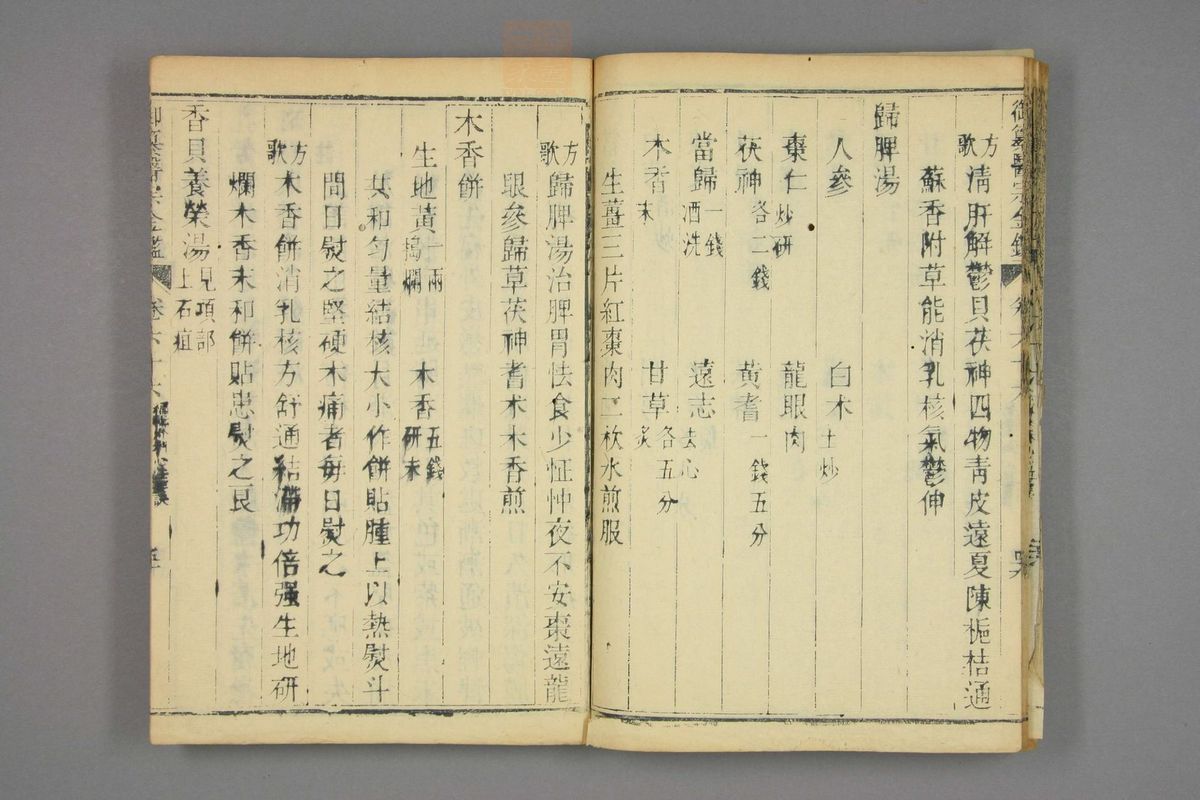 御纂醫宗金鑑 卷六十六
方歌 清肝解鬱貝茯神四物青皮遠夏陳梔桔通
蘇香附草能消乳核氣鬱伸
歸脾湯
人參 白朮土炒
棗仁炒研 龍眼肉
茯神各二錢 黃耆一錢五分
當歸一錢酒洗 遠志去心
木香末 甘草炙各五分
生薑三片紅棗肉二枚水煎服
方歌 歸脾湯治脾胃怯食少怔忡夜不安棗遠龍
眼參歸草茯神耆朮木香煎
木香餅
生地黃一兩搗爛 木香五錢研末
共和勻量結核大小作餅貼腫上以熱熨斗
間日熨之堅硬木痛者每日熨之
方歌 木香餅消乳核方舒通結滯功倍強生地研
爛木香末和餅貼患熨之良
香貝養榮湯見項部上石疽
御纂醫宗金鑑 卷六十六